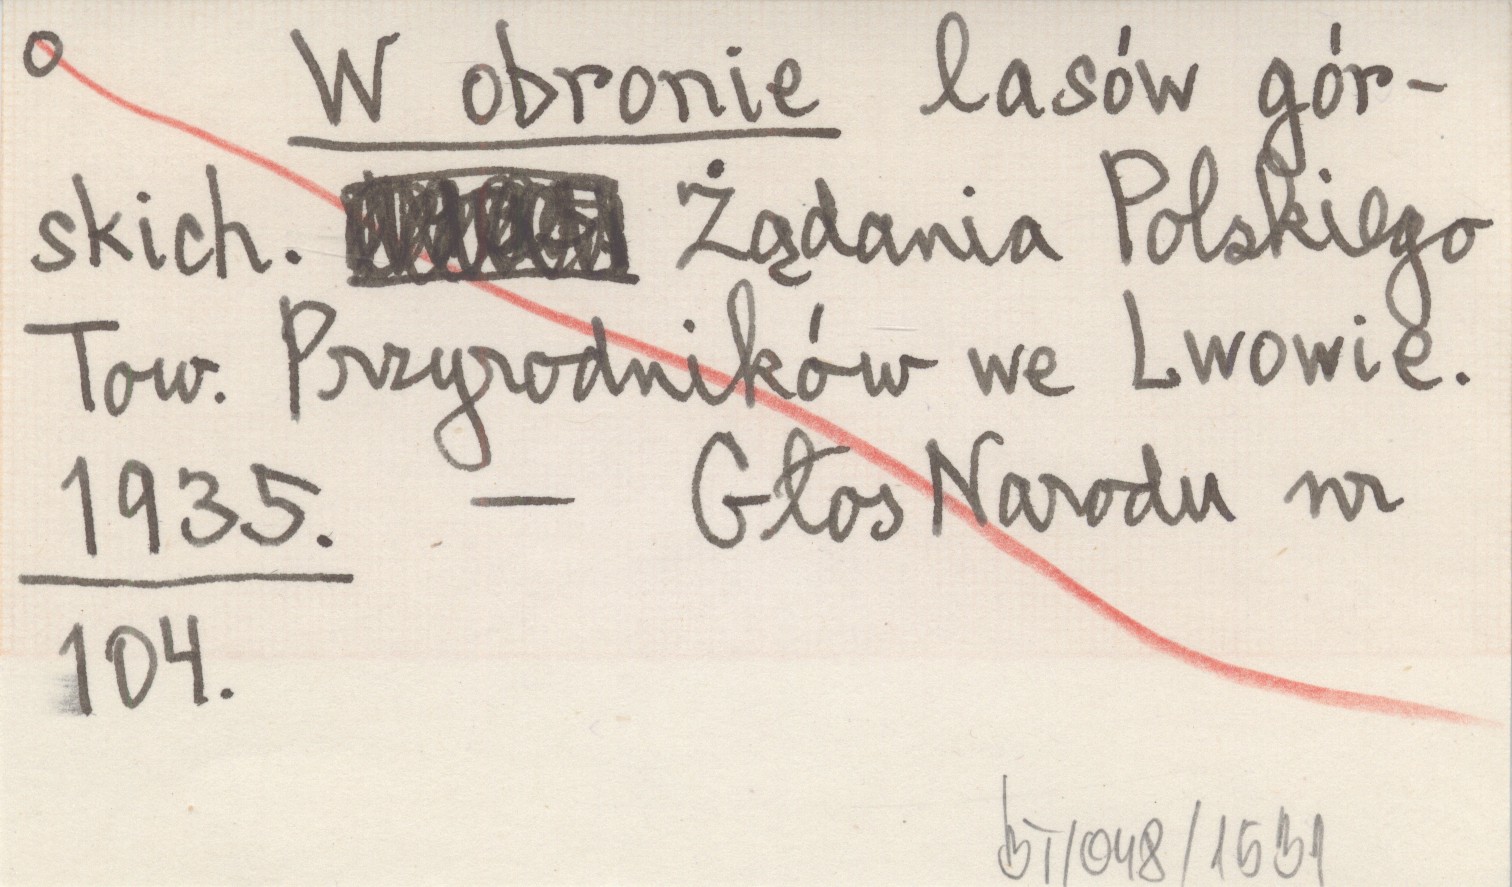 o W obronie lasów gór-
skich. Żądania Polskiego
Tow. Przyrodników we Lwowie.
1935. — Głos Narodu nr
104.
BT/048/1531